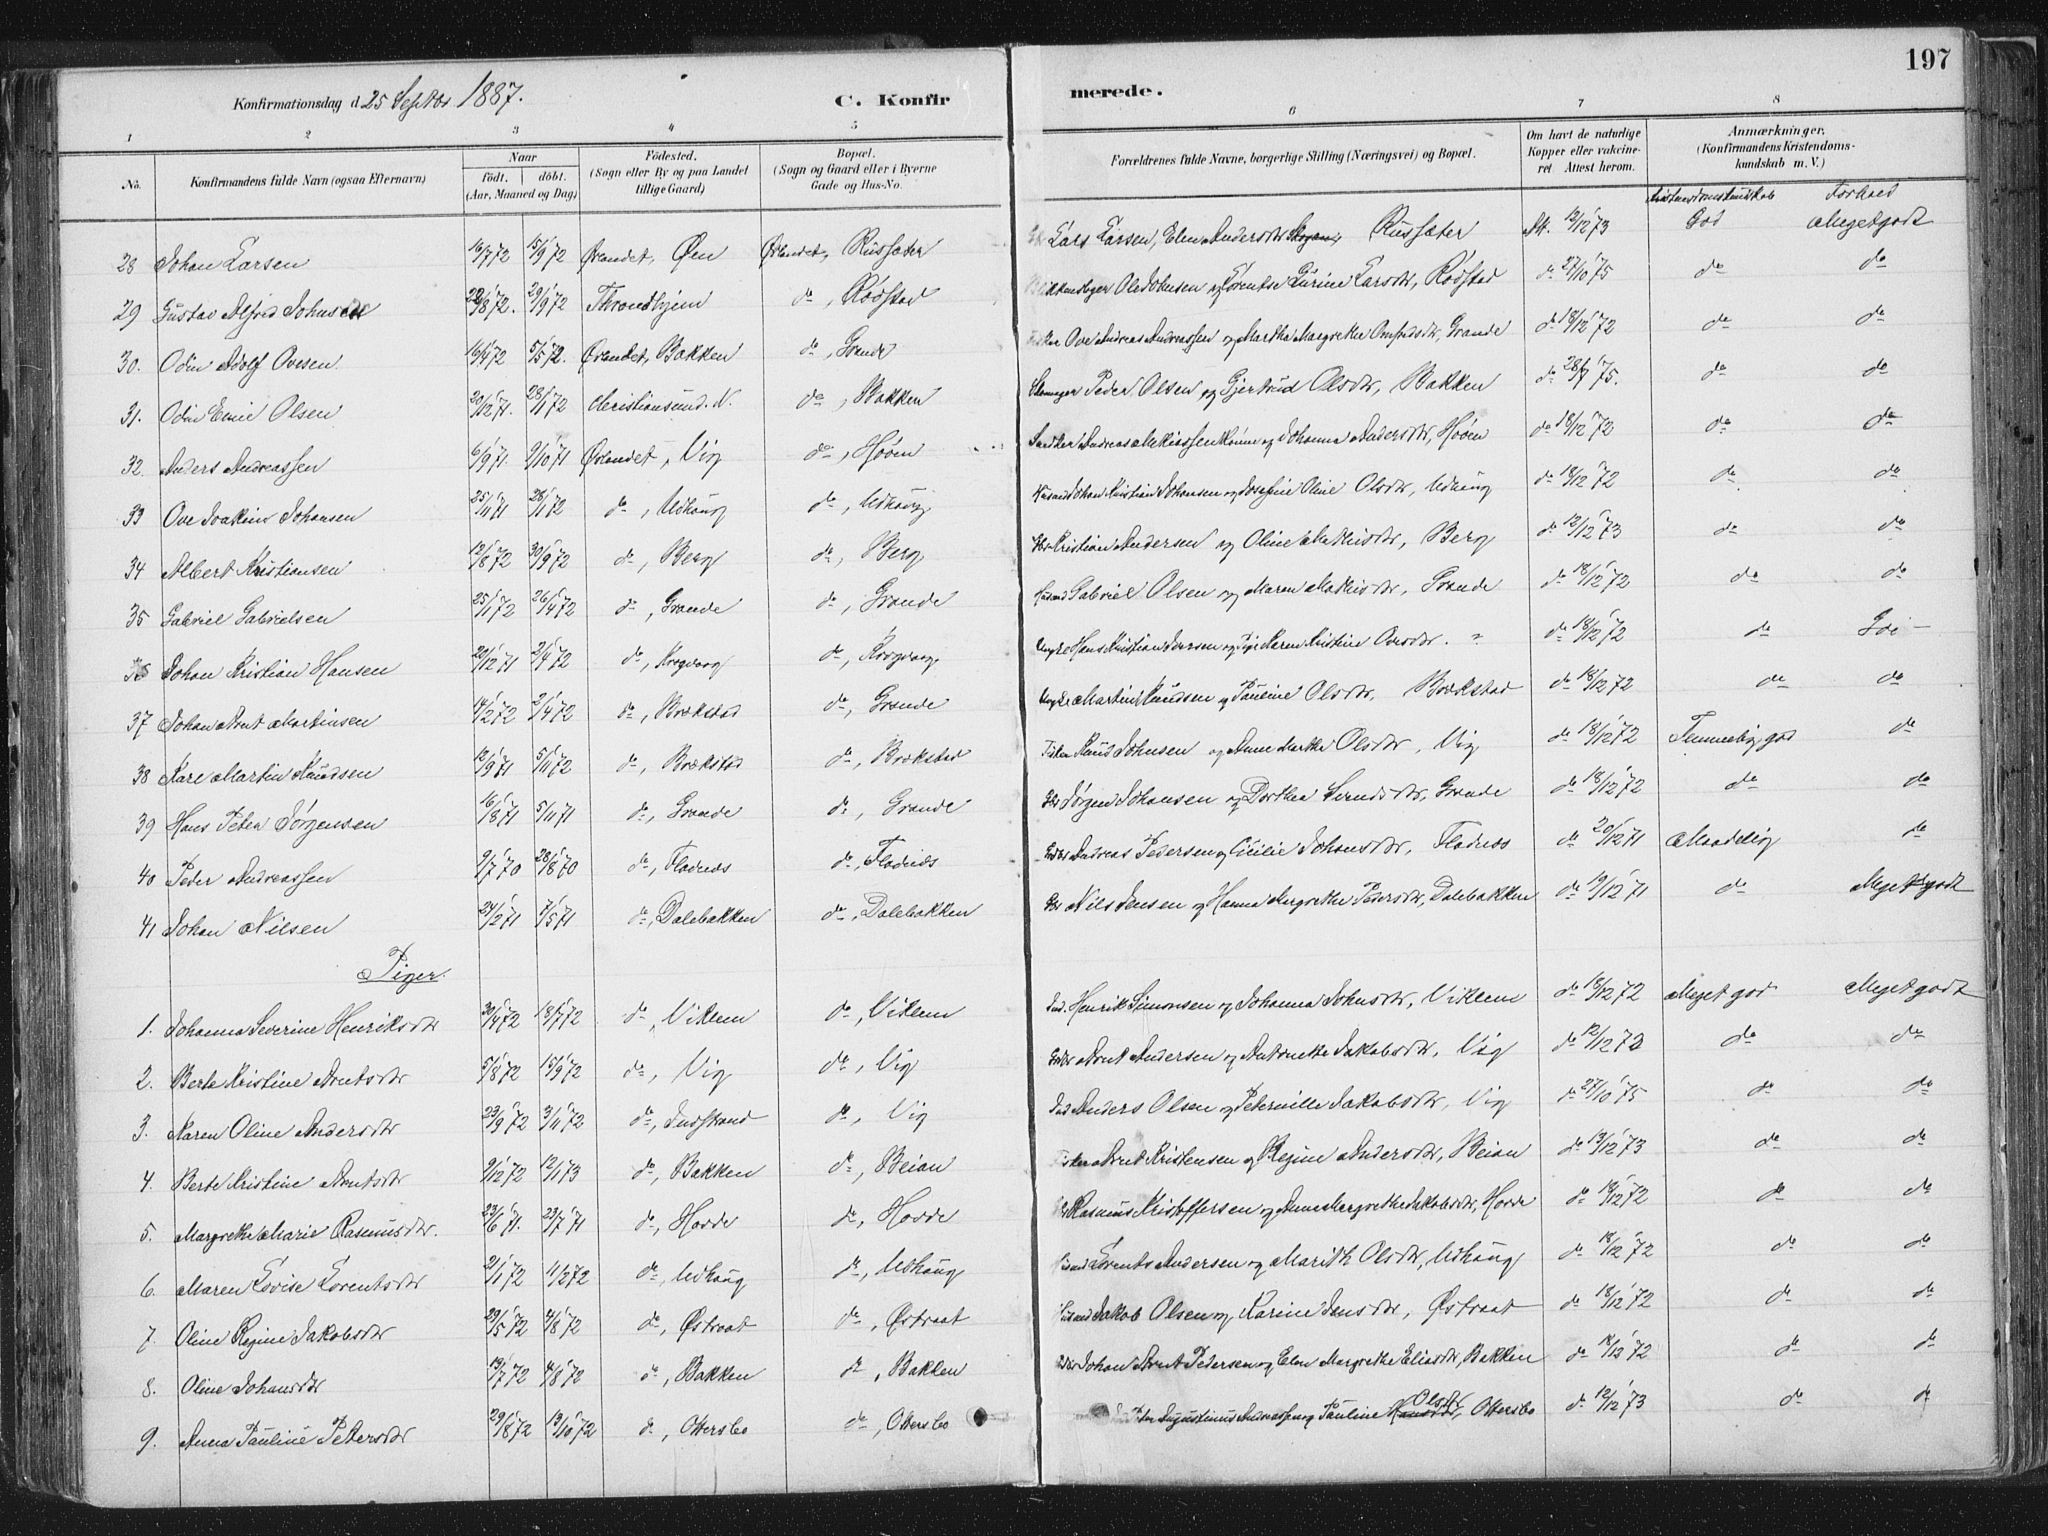 197
Konfirmationsdag d. 25 Septbr 1887. C. Konfirmerede.
1 2 3 4 5 6 7 8
No. Konfirmandens fulde Navn (ogsaa Efternavn) Naar født. døbt. (Aar, Maaned og Dag) Fødested. (Sogn eller By og paa Landet tillige Gaard) Bopæl. (Sogn og Gaard eller i Byerne Gade og Hus-No. Forældrenes fulde Navne, borgerlige Stilling (Næringsvei) og Bopæl. Om havt de naturlige Kopper eller vakcineret Attest herom. Anmærkninger, (Konfirmandens Kristendomskundskab m. V.)
Kristendomskundskab Forhold
28 Johan Larsen 16/7 72 15/9 72 Ørlandet, Øen Ørlandet, Russæter Lars Larsen, Elen Andersdtr Russæter At. 12/12 73 God Meget godt
29 Gustav Alfred Johnsen 22/8 72. 29/9 72 Throndhjem do, Rødstad Ole Johnsen og Lorentse Gurine Larsdtr, Rødstad do 27/10 75 do do
30. Odin Adolf Ovesen 16/4 72 5/5 72. Ørlandet, Bakken do, Grande Ove Andreas Andreassen og Martha Margrethe Omfredsdtr, Grande do 18/12 72 do do
31. Odin Emil Olsen 20/12 71. 28/1 72 Christiansund. N. do, Bakken Peder Olsen og Gjertrud Olsdtr, Bakken do 28/7 75. do do
32. Anders Andreassen 6/9 71. 9/10 71 Ørlandet, Vig do, Høven Andreas og Johanna Andersdtr, Høven do 18/12 72 do do
33 Ove Joakim Johansen 25/11 71 28/1 72 do, Udhaug do, Udhaug, Husmd Johan Kristian Johansen og Josefine Oline Olsdtr, Udhaug do 18/12 72 do do
34 Albert Kristiansen 12/8 72 30/9 72 do, Berg do, Berg Gbr Kristian Andersen og Oline Mathisdtr, Berg do 12/12 73 do do
35 Gabriel Gabrielsen 25/1 72 26/4 72 do, Grande do, Grande Husmd Gabriel Olsen og Maren Mathisdtr, Grande do 18/12 72 do do
36 Johan Kristian Hansen 20/12 71 2/4 72 do, Krogvaag do, Krogvaag, Ungk. Hans Kristian Iversen og Pige Karen Kristine Ovesdtr. " do 18/12 72 do God
37 Johan Arnt Martinsen 14/2 72 2/4 72 do, Brekstad do, Grande Ungk. Martin Knudsen og Pauline Olsdtr, Brekstad do 18/12 72 do do
38 Karl Martin Knudsen 12/9 71 5/11 72 do, Brekstad do, Brekstad Fisker Knud Johnsen og Anne Marthe Olsdtr, Vig do 18/12 72 Temmelig god do
39 Hans Peter Jørgensen 16/8 71 5/11 71 do, Grande do, Grande Gbr Jørgen Johansen og Dorthea Serndsdtr, Grande do 18/12 72 do do
40 Peder Andreassen 9/7 70 28/8 70 do, Fladnes do, Fladnes Andreas Pedersen og Cicilie Johansdtr, Fladnes do 20/12 71 Maadelig do
41 Johan Nilsen 24/2 71 7/5 71 do, Dalebakken do, Dalebakken Gbr Nils Jensen og Hanna Margrethe Pedersdtr, Dalebakken do 19/12 71 do Meget godt
Piger.
1. Johanna Severine Henriksdtr 30/4 72 18/7 72 do, Viklem do, Viklem Ind. Henrik Simonsen og Johanna Johnsdtr, Viklem do 18/12 72 Meget god Meget godt
2. Berte Kristine Arntsdtr 5/8 72 15/9 72 do, Vig do, Vig Arnt Andersen og Antonette Jakobsdtr, Vig do 12/12 73 do do
3. Karen Oline Andersdtr 23/9 72 3/11 72 do, Indstrand do, Vig Ind Anders Olsen og Peternille Jakobsdtr, Vig do 27/10 75 do do
4. Berte Kristine Arntsdtr 9/12 72 12/1 73 do, Bakken do, Beian Fisker Arnt Kristensen og Regine Andersdtr, Beian do 13/12 73 do do
5. Margrethe Marie Rasmusdtr. 23/6 71. 23/7 71 do, Hovde do, Hovde Rasmus Kristoffersen og Anne Margrethe Jakobsdtr, Hovde do 18/12 72 do do
6. Maren Lovise Lorentsdtr 2/1 72 11/2 72 do, Udhaug do, Udhaug Husmd Lorents Andersen og Marith Olsdtr, Udhaug do 18/12 72 do do
7. Oline Regine Jakobsdtr 29/5 72 4/8 72 do, Østraat do, Østraat Husmd Jakob Olsen og Karine Jensdtr, Østraat do 18/12 72 do do
8. Oline Johansdtr 13/7 72 4/8 72 do, Bakken do, Bakken Johan Arnt Pedersen og Elen Margrethe Eliasdtr, Bakken do 18/12 72 do do
9. Anna Pauline Petersdtr 29/8 72 13/10 72 do, Ottersbo do, Ottersbo Peter Augustinus Andreassen og Pauline Hansdtr Olsdtr, Ottersbo do 12/12 73 do do